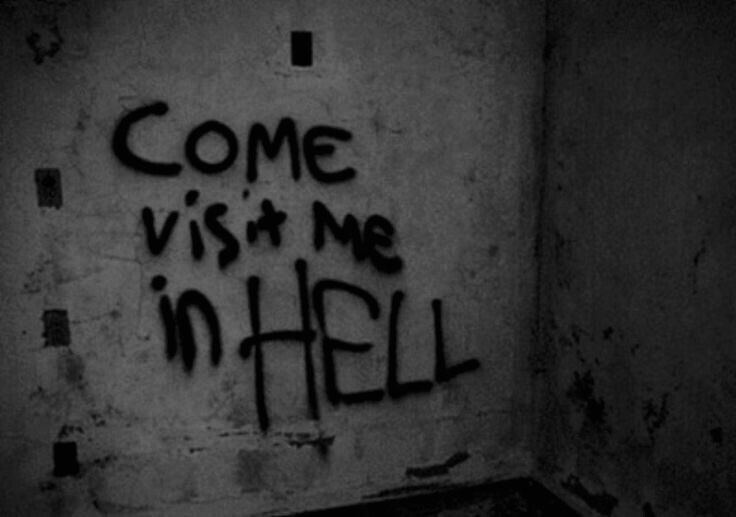 COME
visit Me
in HELL